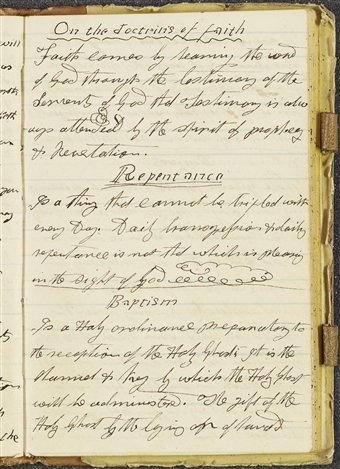 On the doctrins of faith
Faith comes by hearing the word
of God through the testimony of the
Servents of God that testimony is alw
ays attended by the spirit of prophecy
& Revelation.
Repentance
Is a thing that cannot be trifled with
every day. Daily transgression & daily
repentance is not that which is pleasing
in the sight of God
Baptism
Is a Holy ordinance preparatory to
the reception of the Holy Ghost; It is the
channel & Key by which the Holy Ghost
will be administered. The gift of the
Holy Ghost by the laying on of hands
will
as
you
the